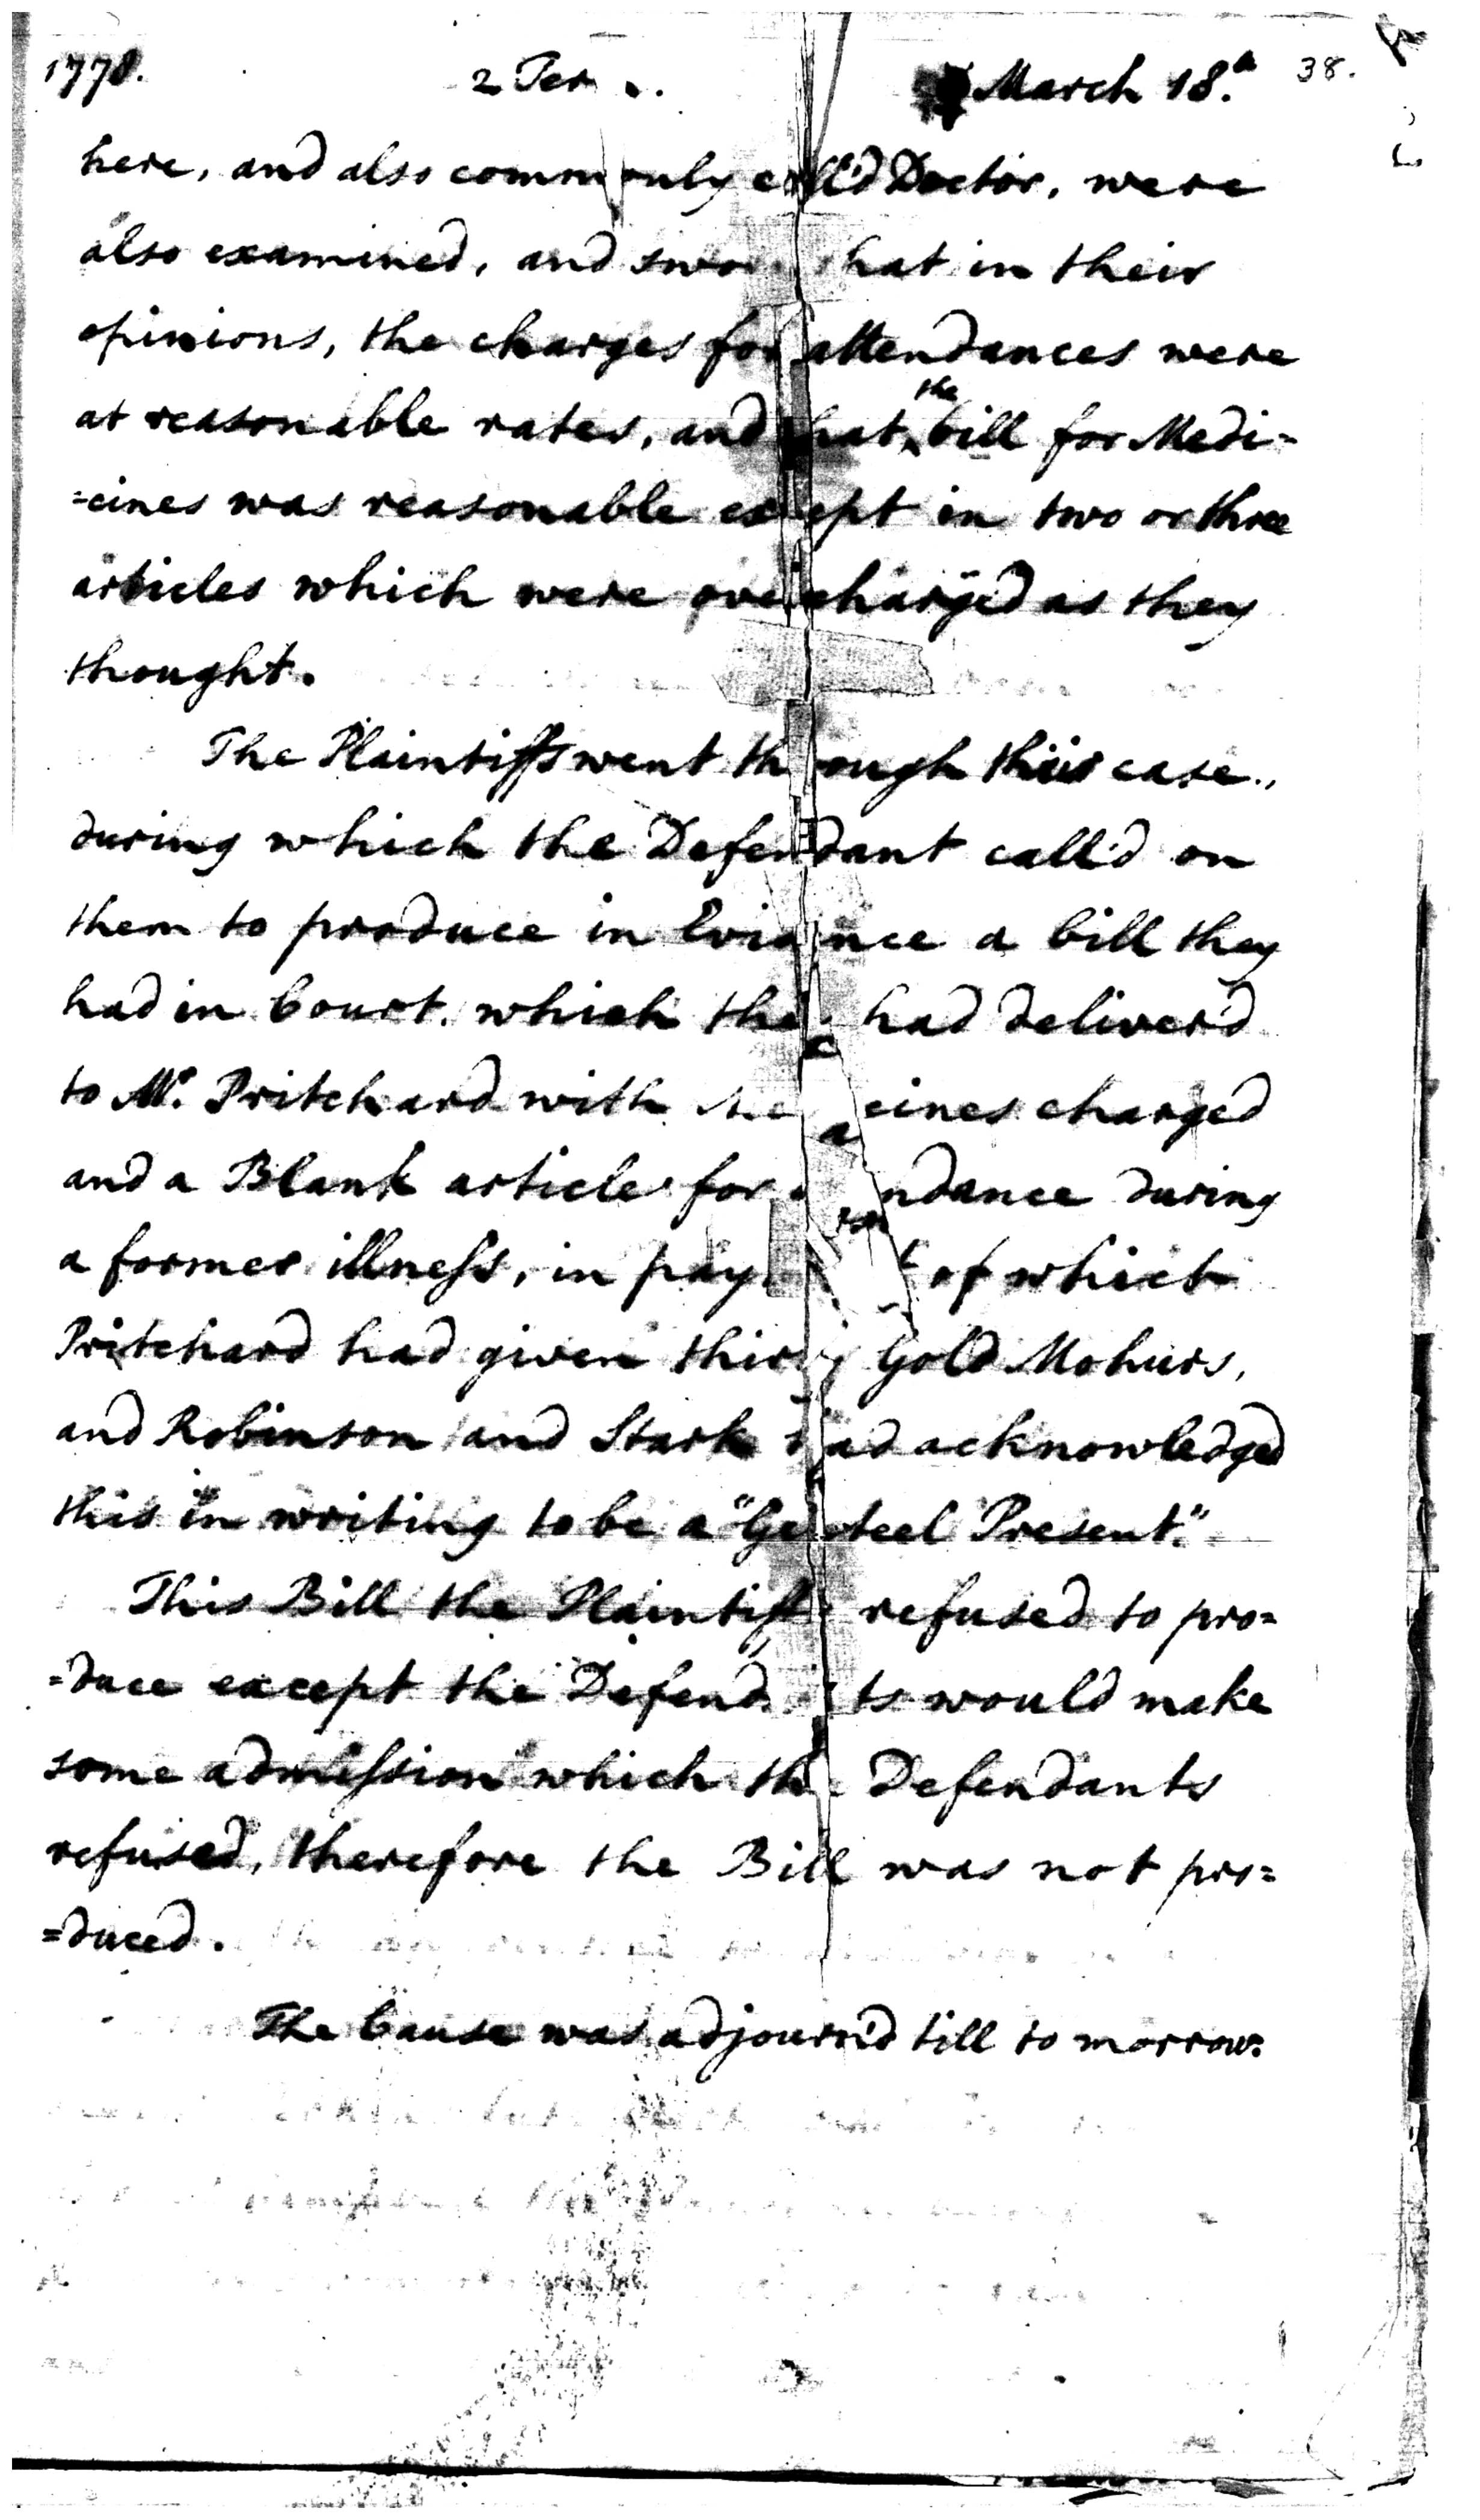 1778. 2 Ter . March 18.th 38.
here, and also commonly call'd Doctor, were
also examined, and swore that in their
opinions, the charges for attendances were
at reasonable rates, and that the bill for Medi=
=cines was reasonable except in two or three
articles which were overcharged as they
thought.
The Plaintiffs went through their case.,
during which the Defendant call'd on
them to produce in Evidence a bill they
had in Court. which they had deliver'd
to Mr. Pritchard with Medicines charged
and a Blank article for attendance during
a former illness, in payment of which
Pritchard had given thirty Gold Mohurs,
and Robinson and Stark had acknowledged
this in writing to be a "Genteel Present."
This Bill the Plaintiffs refused to pro=
=duce except the Defendants would make
some admission which the Defendants
refused, therefore the Bill was not pro=
=duced.
The Cause was adjourn'd till to morrow.